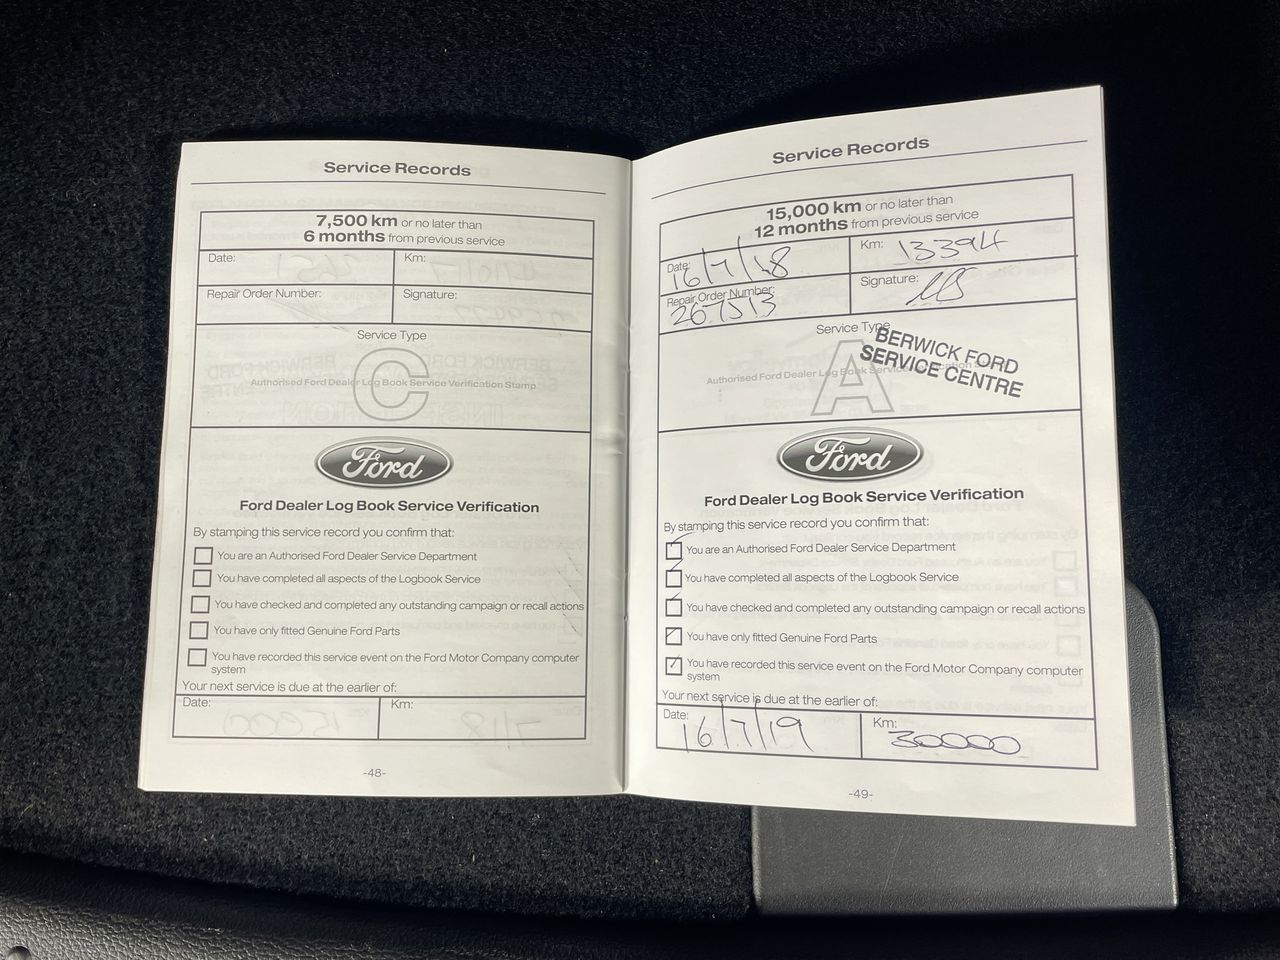 Service Records
7,500 km or no later than
6 months from previous service
Date:
Km:
Repair Order Number:
Signature:
Service Type
C
Authorised Ford Dealer Log Book Service Verification Stamp
Ford
Ford Dealer Log Book Service Verification
By stamping this service record you confirm that:
You are an Authorised Ford Dealer Service Department
You have completed all aspects of the Logbook Service
You have checked and completed any outstanding campaign or recall actions
You have only fitted Genuine Ford Parts
You have recorded this service event on the Ford Motor Company computer
system
Your next service is due at the earlier of:
Date:
Km:
-48-
Service Records
15,000 km or no later than
12 months from previous service
Date: 16/7/18
Km: 13394
Repair Order Number:
267513
Signature:
Service Type
A
Authorised Ford Dealer Log Book Service
BERWICK FORD
SERVICE CENTRE
Ford
Ford Dealer Log Book Service Verification
By stamping this service record you confirm that:
You are an Authorised Ford Dealer Service Department
You have completed all aspects of the Logbook Service
You have checked and completed any outstanding campaign or recall actions
You have only fitted Genuine Ford Parts
You have recorded this service event on the Ford Motor Company computer
system
Your next service is due at the earlier of:
Date: 16/7/19
Km: 30000
-49-